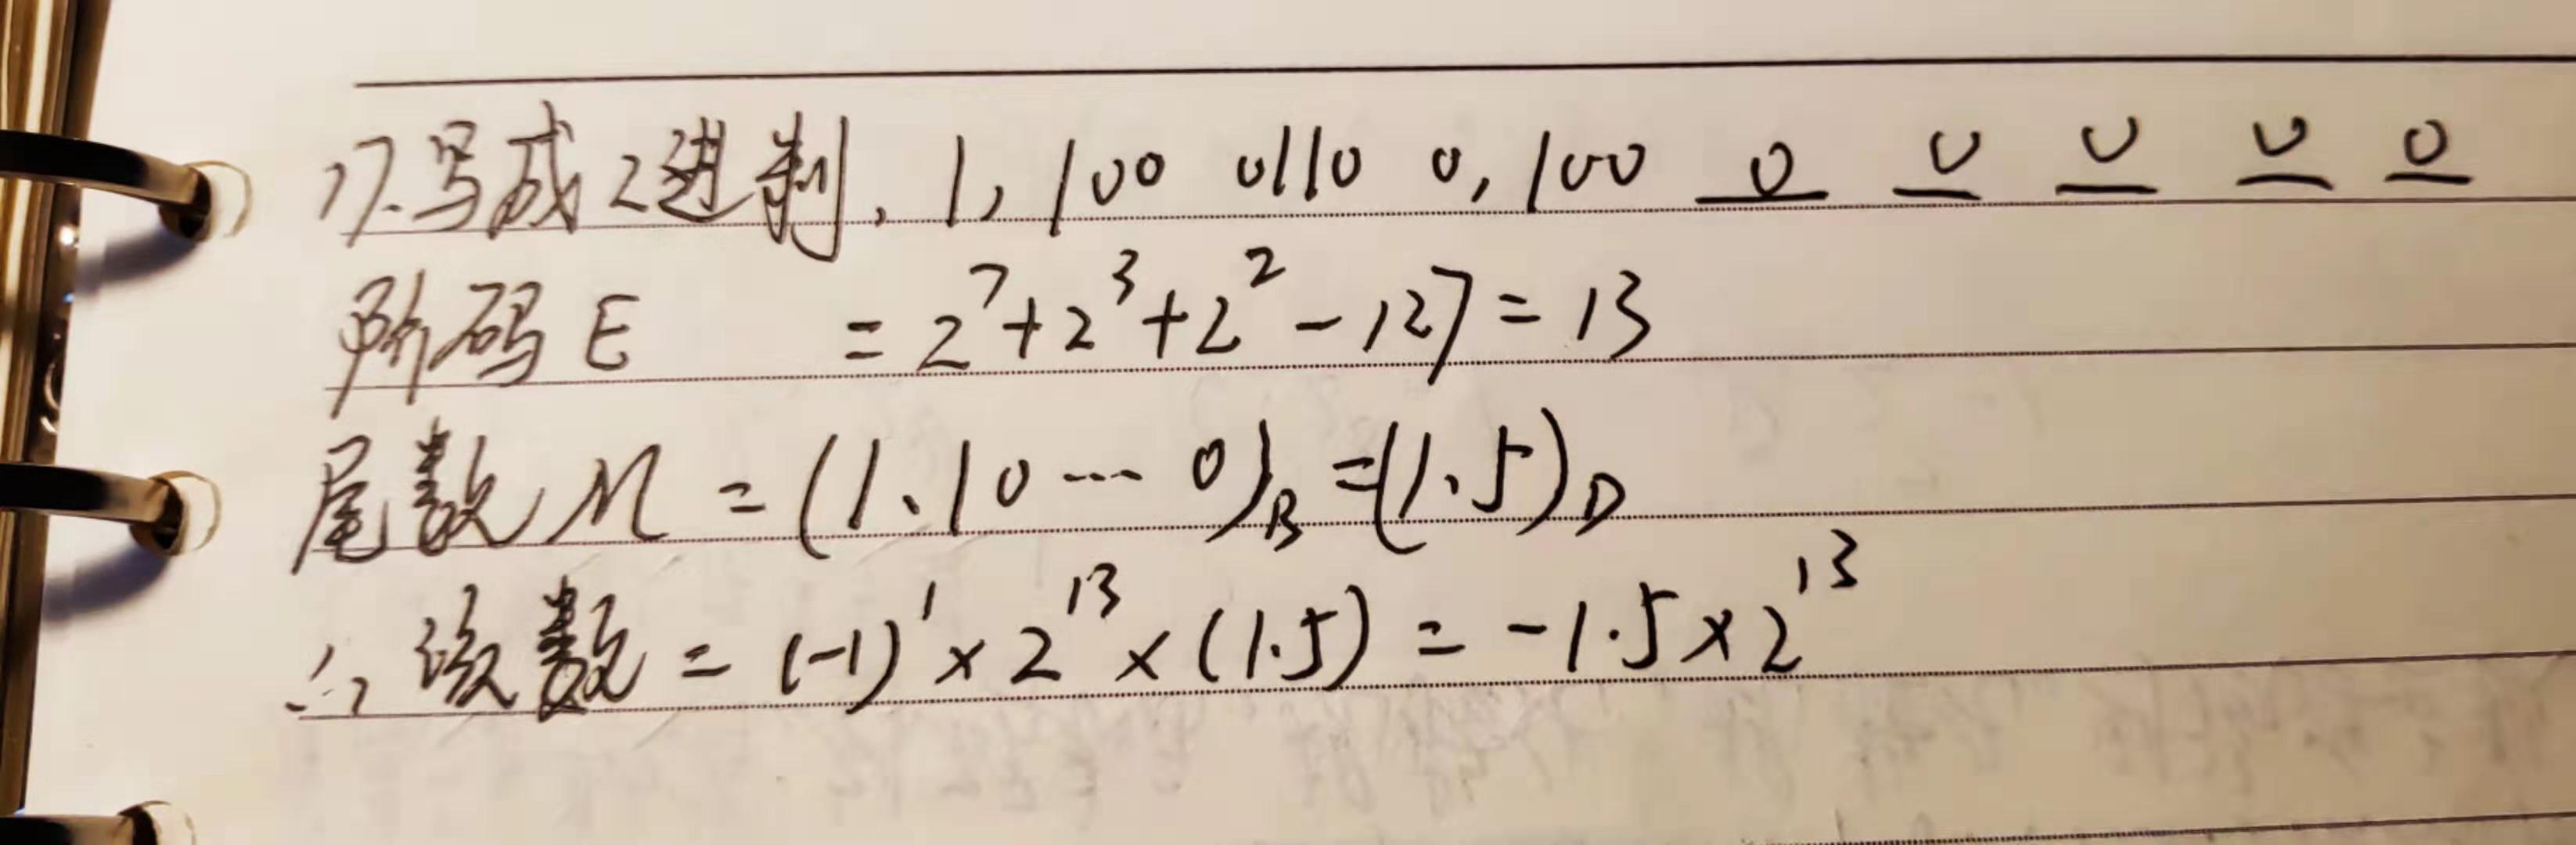 17.写成2进制, 1, 100 0110 0, 100 0 0 0 0 0
阶码E = 2^7+2^3+2^2-127=13
尾数M = (1.10…0)_B=(1.5)_D
∴该数 = (-1)^1×2^13×(1.5) = -1.5×2^13